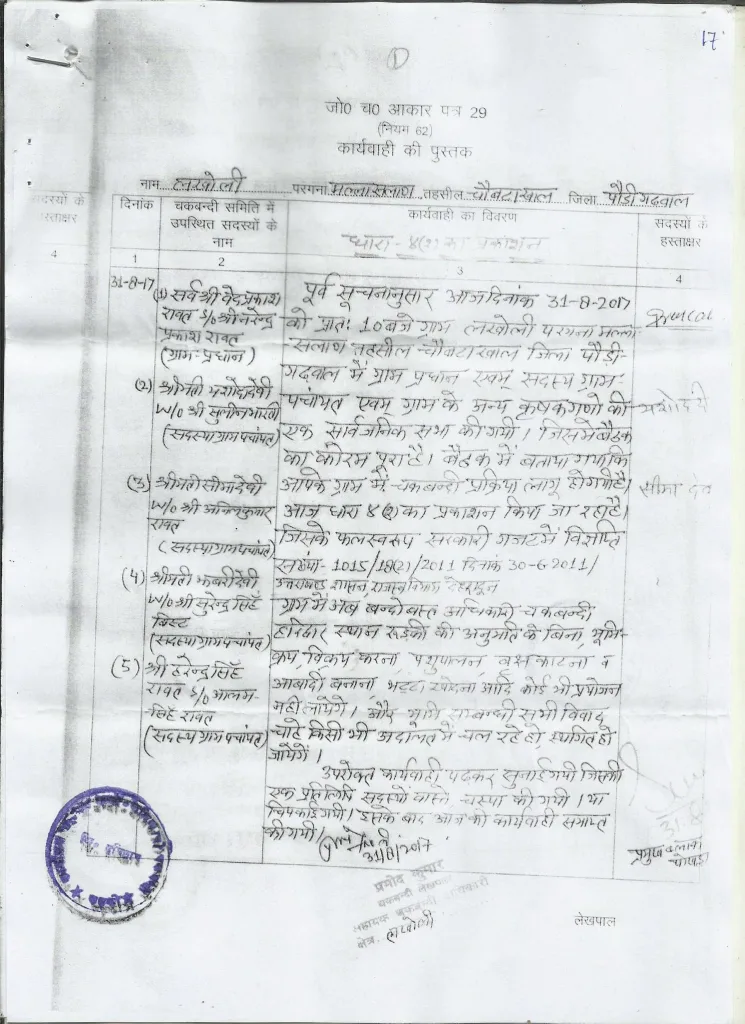 17
1
जो0 च0 आकार पत्र 29
(नियम 62)
कार्यवाही की पुस्तक
नाम लखोली परगना मल्लासलाण तहसील चौबटाखाल जिला पौडीगढवाल
सदस्यों के
हस्ताक्षर
4
दिनांक
चकबन्दी समिति में
उपस्थित सदस्यों के
नाम
कार्यवाही का विवरण
धारा - 4(2) का प्रकाशन
सदस्यों के
हस्ताक्षर
1 2 3 4
31-8-17
(1) सर्व श्री वेदप्रकाश
रावत S/o श्री नरेन्द्र
प्रकाश रावत
(ग्राम-प्रधान)
(2) श्रीमती यशोदादेवी
W/o श्री सुलीनभारती
(सदस्या ग्राम पंचायत)
(3) श्रीमती सीमादेवी
W/o श्री अनिलकुमार
रावत
(सदस्या ग्राम पंचायत)
(4) श्रीमती झबरीदेवी
W/o श्री सुरेन्द्र सिंह
बिष्ट
(सदस्या ग्राम पंचायत)
(5) श्री हरेन्द्र सिंह
रावत S/o आलम-
सिंह रावत
(सदस्य ग्राम पंचायत)
पूर्व सूचनानुसार आज दिनांक 31-8-2017
को प्रातः 10 बजे ग्राम लखोली परगना मल्ला
सलाण तहसील चौबटाखाल जिला पौडी-
गढवाल में ग्राम प्रधान एवम् सदस्य ग्राम-
पंचायत एवम् ग्राम के अन्य कृषकगणो की
एक सार्वजनिक सभा की गयी। जिसमे बैठक
का कोरम पूरा है। बैठक में बताया गया कि
आपके ग्राम में चकबन्दी प्रक्रिया लागू होगयी है।
आज धारा 4(2) का प्रकाशन किया जा रहा है।
जिसके फलस्वरुप सरकारी गजट में विज्ञप्ति
संख्या- 1015/18(2)/2011 दिनांक 30-6-2011/
उत्तराखण्ड शासन, राजस्व विभाग देहरादून
ग्राम में अब बन्दोबस्त अधिकारी चकबन्दी
हरिद्वार स्थान रुडकी की अनुमति के बिना, भूमि-
क्रय, विक्रय करना, पशुपालन, वृक्ष काटना व
आबादी बनाना, भट्टा खोदना आदि कोई भी प्रयोजन
नही लायेंगे। और भूमि सम्बन्धी सभी विवाद
चाहे किसी भी अदालत में चल रहे हो, स्थगित हो
जायेगें।
उपरोक्त कार्यवाही पढकर सुनाई गयी जिसकी
एक प्रतिलिपि सदस्यों वास्ते चस्पा की गयी। या
चिपकाई गयी। इसके बाद आज की कार्यवाही समाप्त
की गयी।
31/8/2017
यशोदा दे
सीमा देव
31.8
प्रमोद कुमार
चकबन्दी लेखपाल
सहायक चकबन्दी अधिकारी
क्षेत्र. लखोली
लेखपाल